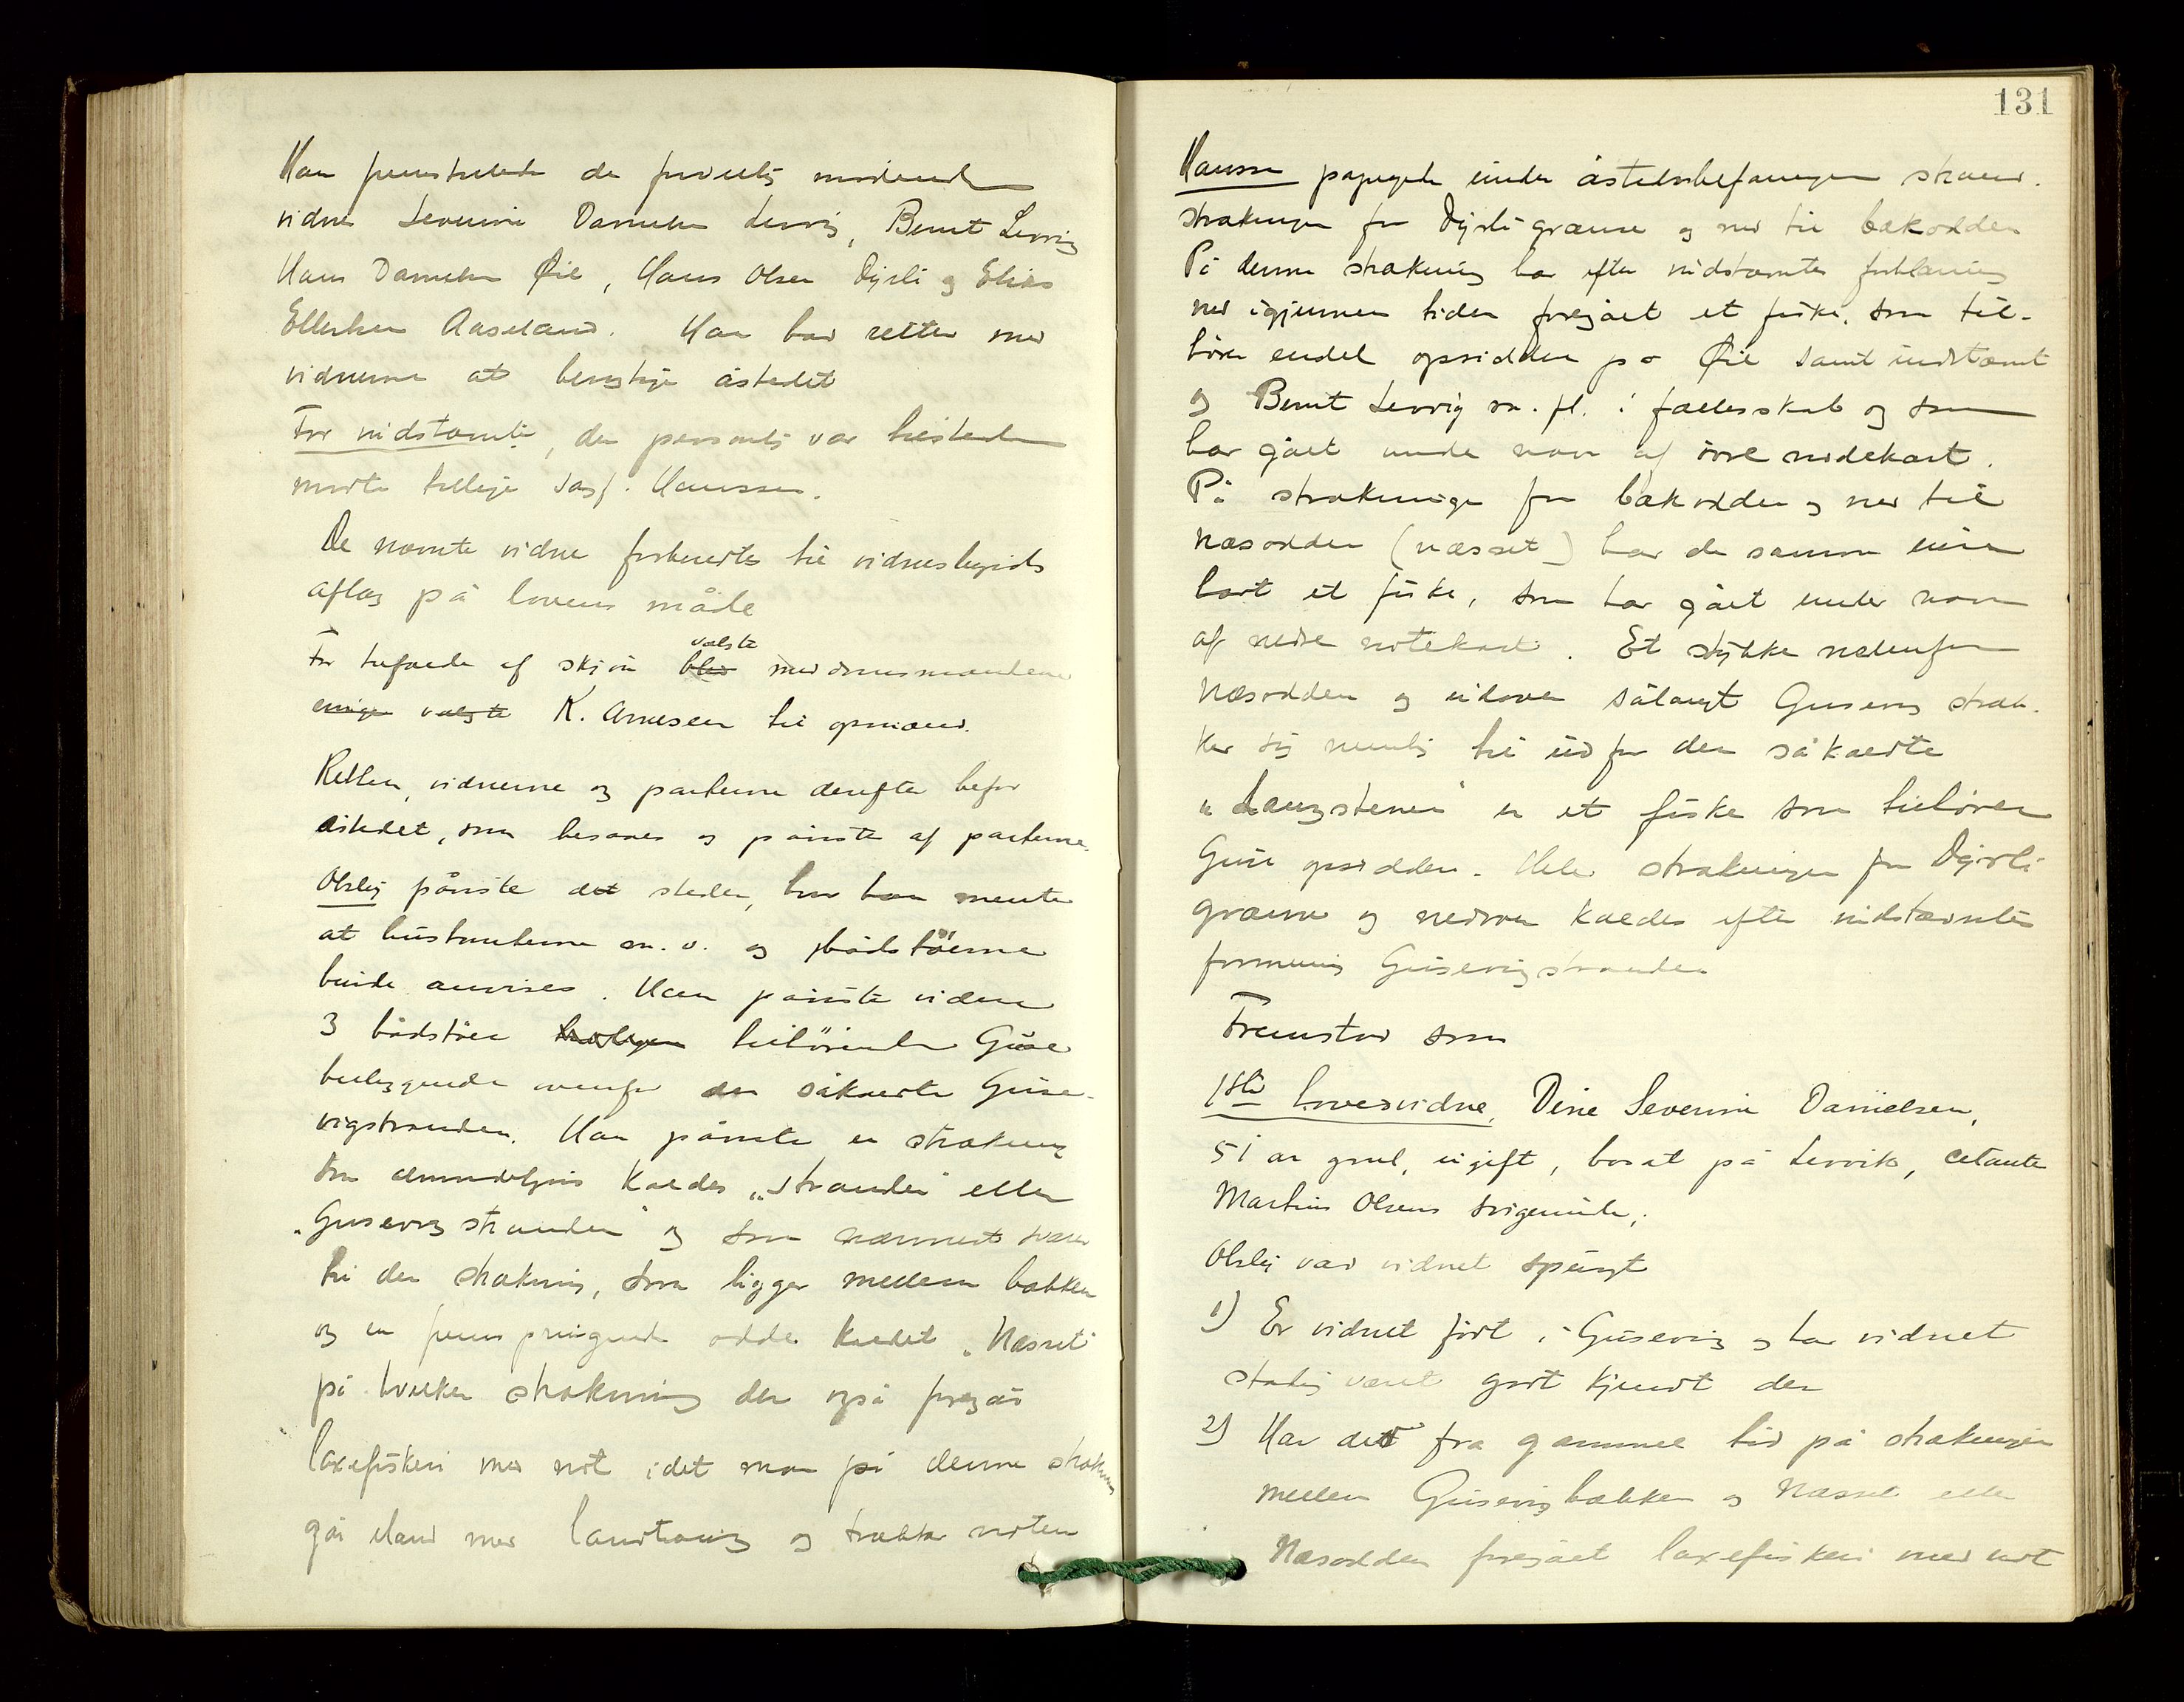 Han fremstillede de frivillig mødende
vidner Severine Danielsen Lervig, Bernt Lervig
Hans Danielsen Øie, Hans Olsen Dyrli og Elias
Ellertsen Aaseland. Han bad retten med
vidnerne at besigtige åstedet
For indstævnte, der personlig var tilstede
mødte tillige sagf. Hanssen.
De nævnte vidner forberedtes til vidnesbyrds
aflæg på lovens måde
For tilfælde af skjøn blev valgte meddomsmændene
enige valgte K. Arnesen til opmand.
Retten, vidnerne og parterne derefter befor
åstedet, som besaaes og påviste af parterne.
Olslej påviste det steder, hvor han mente
at hustomterne m. v. og bådstøerne
burde anvises. Han påviste videre
3 bådstøer tilhørende Guse
beliggende ovenfor den såkaldte Guse-
vigstranden. Han påviste en strækning
som almindeligvis kaldes "stranden" eller
"Gusevigstranden" og som nærmest svarer
til den strækning, som ligger mellem bækken
og en fremspringende odde kaldet "Næsset"
på hvilken strækning der også foregår
laxefiskeri med not idet man på denne strækning
går iland med landtoug og trækker noten
131
Hanssen påpegede under åstedsbefaringen strand-
strækningen fra Dyrli grænse og ned til bækodden
På denne strækning har efter indstævntes forklaring
ned igjennem tiden foregået et fiske, som til-
hører endel opsiddere på Øie samt indstævnte
og Bernt Lervig m. fl. i fællesskab og som
har gået under navn af övre nodekast.
På strækningen fra bækodden og ned til
næsodden (næsset) har de samme eiere
havt et fiske, som har gået under navn
af nedre notekast. Et stykke nedenfor
Næsodden og udover sålangt Gusevig stræk-
ker sig nemlig til ud for den såkaldte
"Langstenen" er et fiske som tilhører
Guse opsiddere. Hele strækningen fra Dyrli
grænse og nedover kaldes efter indstævntes
formening Gusevigstranden
Fremstod som
1ste hovedvidne, Dine Severine Danielsen,
51 år gml, ugift, bosat på Lervik, citanten
Martin Olsens svigerinde,
Olslej vad vidnet spurgt
1) Er vidnet födt i Gusevig og har vidnet
stadig været godt kjendt der
2) Har det fra gammel tid på strækningen
mellem Gusevigbækken og Næsset eller
Næsodden foregået laxefiskeri med not